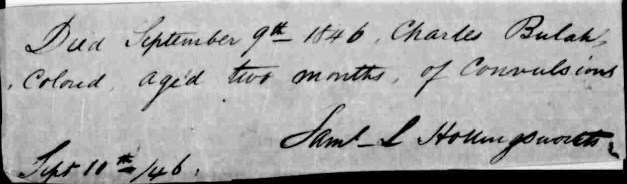 Died September 9th 1846, Charles Bulah,
Colored, aged two months, of Convulsions
Saml L Hollingsworth
Sept 10th /46.